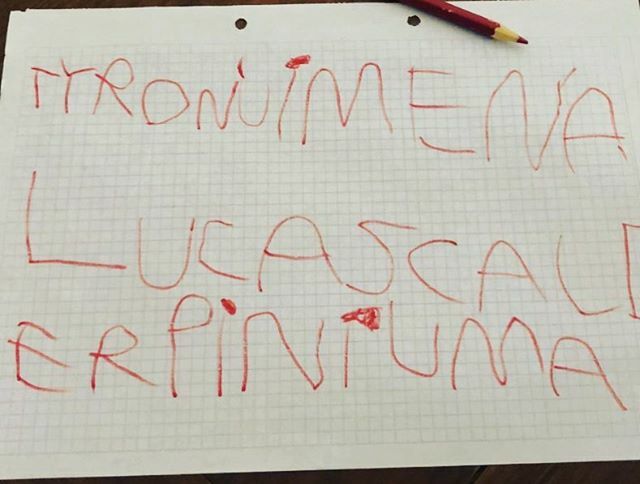 TYRONUiMENA
LUCASCALD
ERPiNiUMA